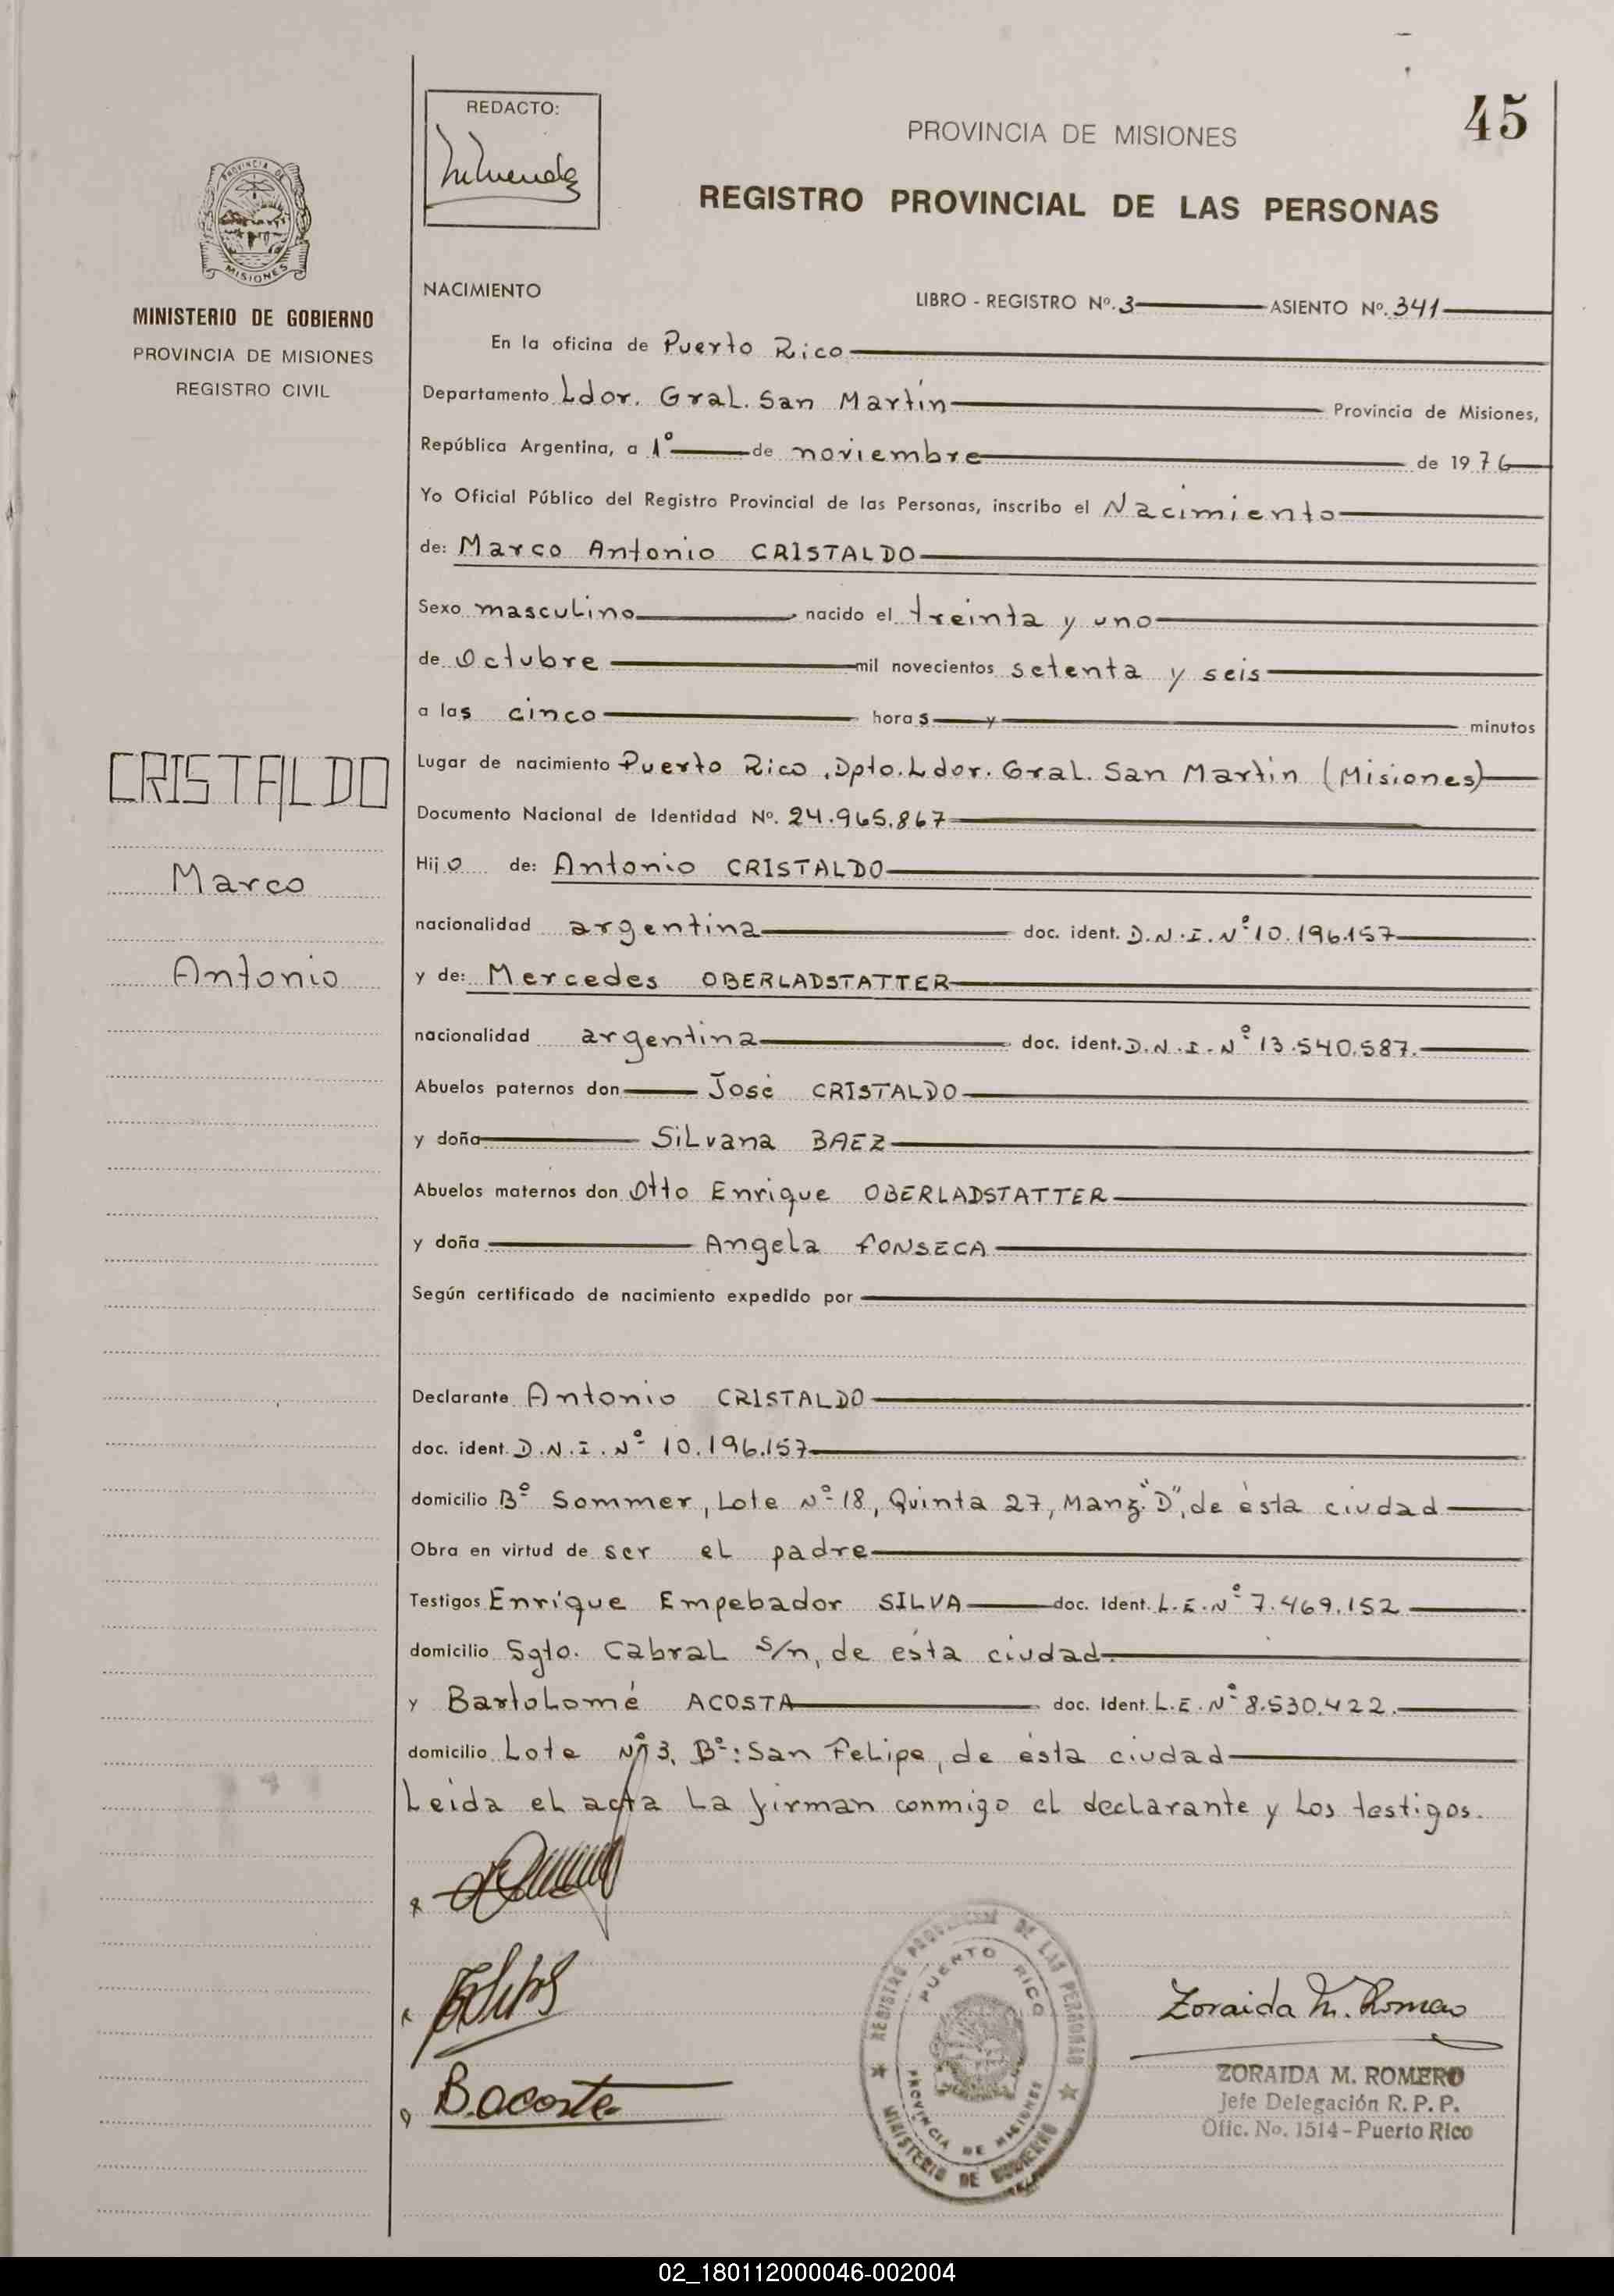 45
REDACTO:
PROVINCIA DE MISIONES
REGISTRO PROVINCIAL DE LAS PERSONAS
PROVINCIA DE
MISIONES
MINISTERIO DE GOBIERNO
PROVINCIA DE MISIONES
REGISTRO CIVIL
NACIMIENTO LIBRO - REGISTRO Nº. 3 ASIENTO Nº. 341
En la oficina de Puerto Rico
Departamento Ldor. Gral. San Martin Provincia de Misiones,
República Argentina, a 1º de noviembre de 1976
Yo Oficial Público del Registro Provincial de las Personas, inscribo el Nacimiento
de: Marco Antonio CRISTALDO
Sexo masculino nacido el treinta y uno
de Octubre mil novecientos setenta y seis
a las cinco horas y minutos
Lugar de nacimiento Puerto Rico, Dpto. Ldor. Gral. San Martin (Misiones)
Documento Nacional de Identidad Nº. 24.965.867
Hijo de: Antonio CRISTALDO
nacionalidad argentina doc. ident. D.N.I. Nº 10.196.157
y de: Mercedes OBERLADSTATTER
nacionalidad argentina doc. ident. D.N.I. Nº 13.540.587.
Abuelos paternos don José CRISTALDO
y doña Silvana BAEZ
Abuelos maternos don Otto Enrique OBERLADSTATTER
y doña Angela FONSECA
Según certificado de nacimiento expedido por
Declarante Antonio CRISTALDO
doc. ident. D.N.I. Nº 10.196.157
domicilio Bº Sommer, Lote Nº 18, Quinta 27, Manz. "D", de ésta ciudad
Obra en virtud de ser el padre
Testigos Enrique Empebador SILVA doc. Ident. L.E. Nº 7.469.152
domicilio Sgto. Cabral s/n, de esta ciudad.
y Bartolomé ACOSTA doc. Ident. L.E. Nº 8.530.422.
domicilio Lote Nº 3, Bº: San Felipe, de ésta ciudad
Leida el acta la firman conmigo el declarante y los testigos.
CRISTALDO
Marco
Antonio
B. Acosta
REGISTRO PROVINCIAL DE LAS PERSONAS
PUERTO RICO
PROVINCIA DE MISIONES
MINISTERIO DE GOBIERNO
Zoraida M. Romero
ZORAIDA M. ROMERO
Jefe Delegación R. P. P.
Ofic. No. 1514 - Puerto Rico
02_180112000046-002004